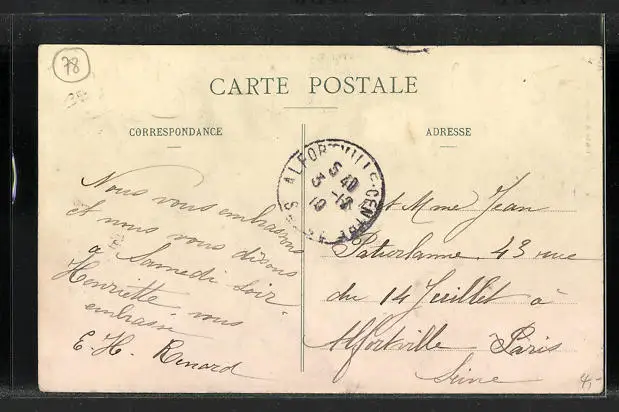 78
CARTE POSTALE
CORRESPONDANCE
ADRESSE
ALFORTVILLE-CENTRE
Nous vous embrassons
et nous vous disons
a Samedi soir
Henriette vous
embrasse
E. H. Renard
et Mme Jean
Paturlanne 43 rue
du 14 Juillet à
Alfortville Paris
Seine
4,-